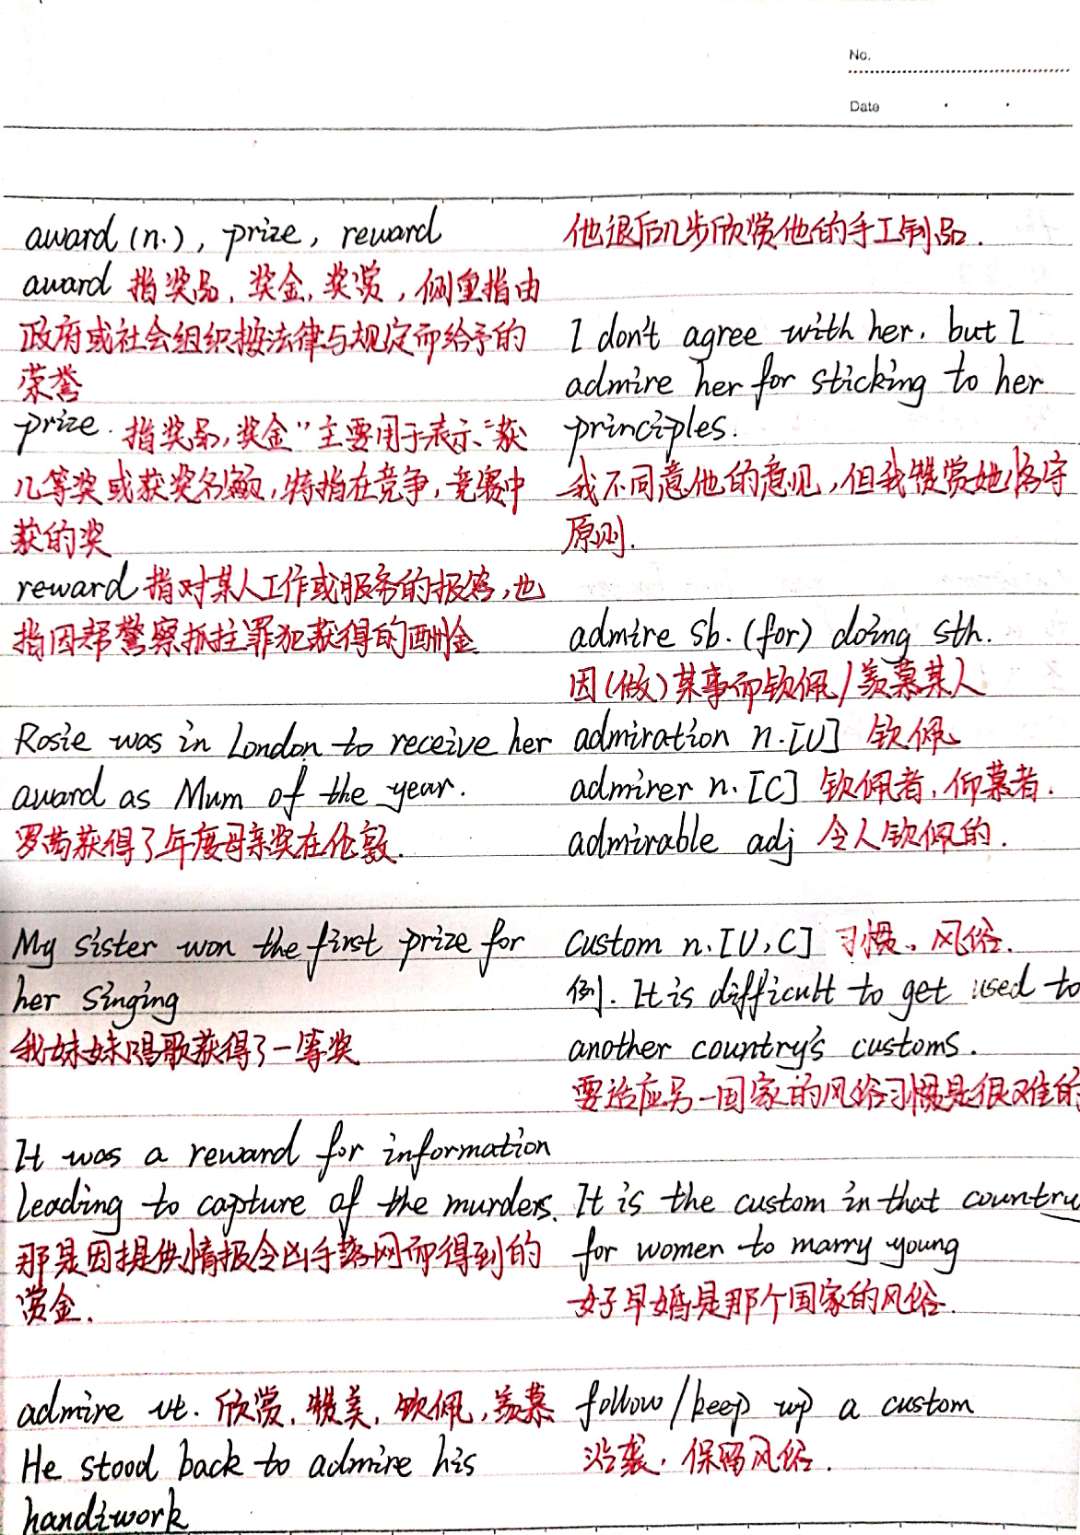 No.
Date
award (n.), prize, reward
award 指奖品, 奖金, 奖赏, 侧重指由
政府或社会组织按法律与规定而给予的
荣誉
prize. 指奖品, 奖金"主要用于表示"获
几等奖或获奖名额, 特指在竞争, 竞赛中
获的奖
reward 指对某人工作或服务的报答, 也
指因帮警察抓拄罪犯获得的酬金
Rosie was in London to receive her
award as Mum of the year.
罗茜获得了年度母亲奖在伦敦.
My sister won the first prize for
her singing
我妹妹唱歌获得了一等奖
It was a reward for information
leading to capture of the murders.
那是因提供情报令凶手落网而得到的
赏金.
admire vt. 欣赏, 赞美, 钦佩, 羡慕
He stood back to admire his
handiwork
他退后几步欣赏他的手工制品.
I don't agree with her, but I
admire her for sticking to her
principles.
我不同意他的意见, 但我赞赏她恪守
原则.
admire sb. (for) doing sth.
因(做)某事而钦佩/羡慕某人
admiration n.[U] 钦佩
admirer n.[C] 钦佩者, 仰慕者.
admirable adj 令人钦佩的.
custom n.[U,C] 习惯、风俗.
例. It is difficult to get used to
another country's customs.
要适应另一国家的风俗习惯是很难的
It is the custom in that country
for women to marry young
女子早婚是那个国家的风俗.
follow/keep up a custom
沿袭, 保留风俗.